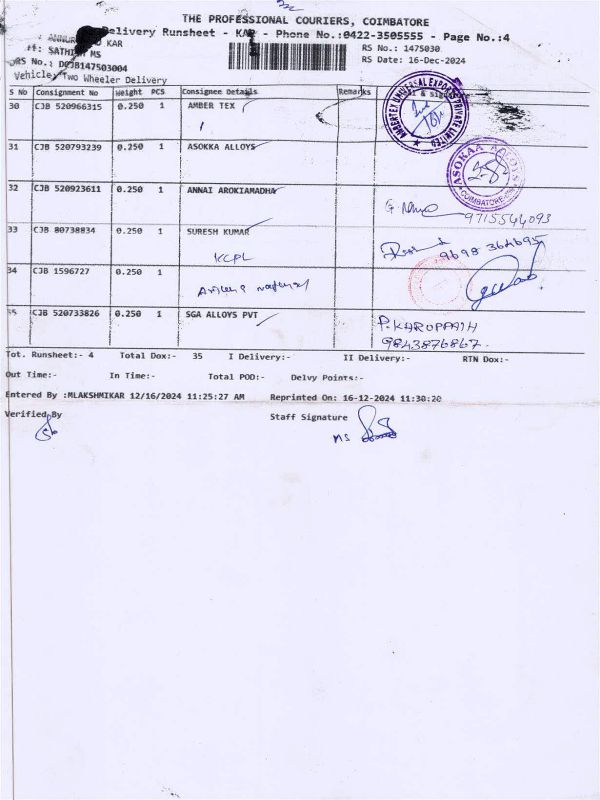 THE PROFESSIONAL COURIERS, COIMBATORE
Delivery Runsheet - KAR - Phone No.:0422-3505555 - Page No.:4
KAR
SATHI MS
RS No.: 1475030
DRS No.: DCJB147503004
RS Date: 16-Dec-2024
Vehicle: Two Wheeler Delivery
S No Consignment No Weight PCS Consignee Details Remarks
30 CJB 520966315 0.250 1 AMBER TEX
AMBERTEX UNIVERSAL EXPORT PRIVATE LIMITED
31 CJB 520793239 0.250 1 ASOKKA ALLOYS
ASOKAA ALLOYS
COIMBATORE
32 CJB 520923611 0.250 1 ANNAI AROKIAMADHA
9715544093
33 CJB 80738834 0.250 1 SURESH KUMAR
KCPL
9698364695
34 CJB 1596727 0.250 1
35 CJB 520733826 0.250 1 SGA ALLOYS PVT
P. KARUPPAIH
9843876867.
Tot. Runsheet:- 4 Total Dox:- 35 I Delivery:- II Delivery:- RTN Dox:-
Out Time:- In Time:- Total POD:- Delvy Points:-
Entered By :MLAKSHMIKAR 12/16/2024 11:25:27 AM Reprinted On: 16-12-2024 11:30:20
Verified By Staff Signature
MS